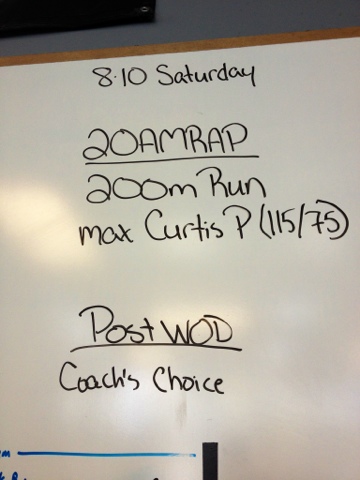 8·10 Saturday
20AMRAP
200m Run
max Curtis P (115/75)
Post WOD
Coach's Choice